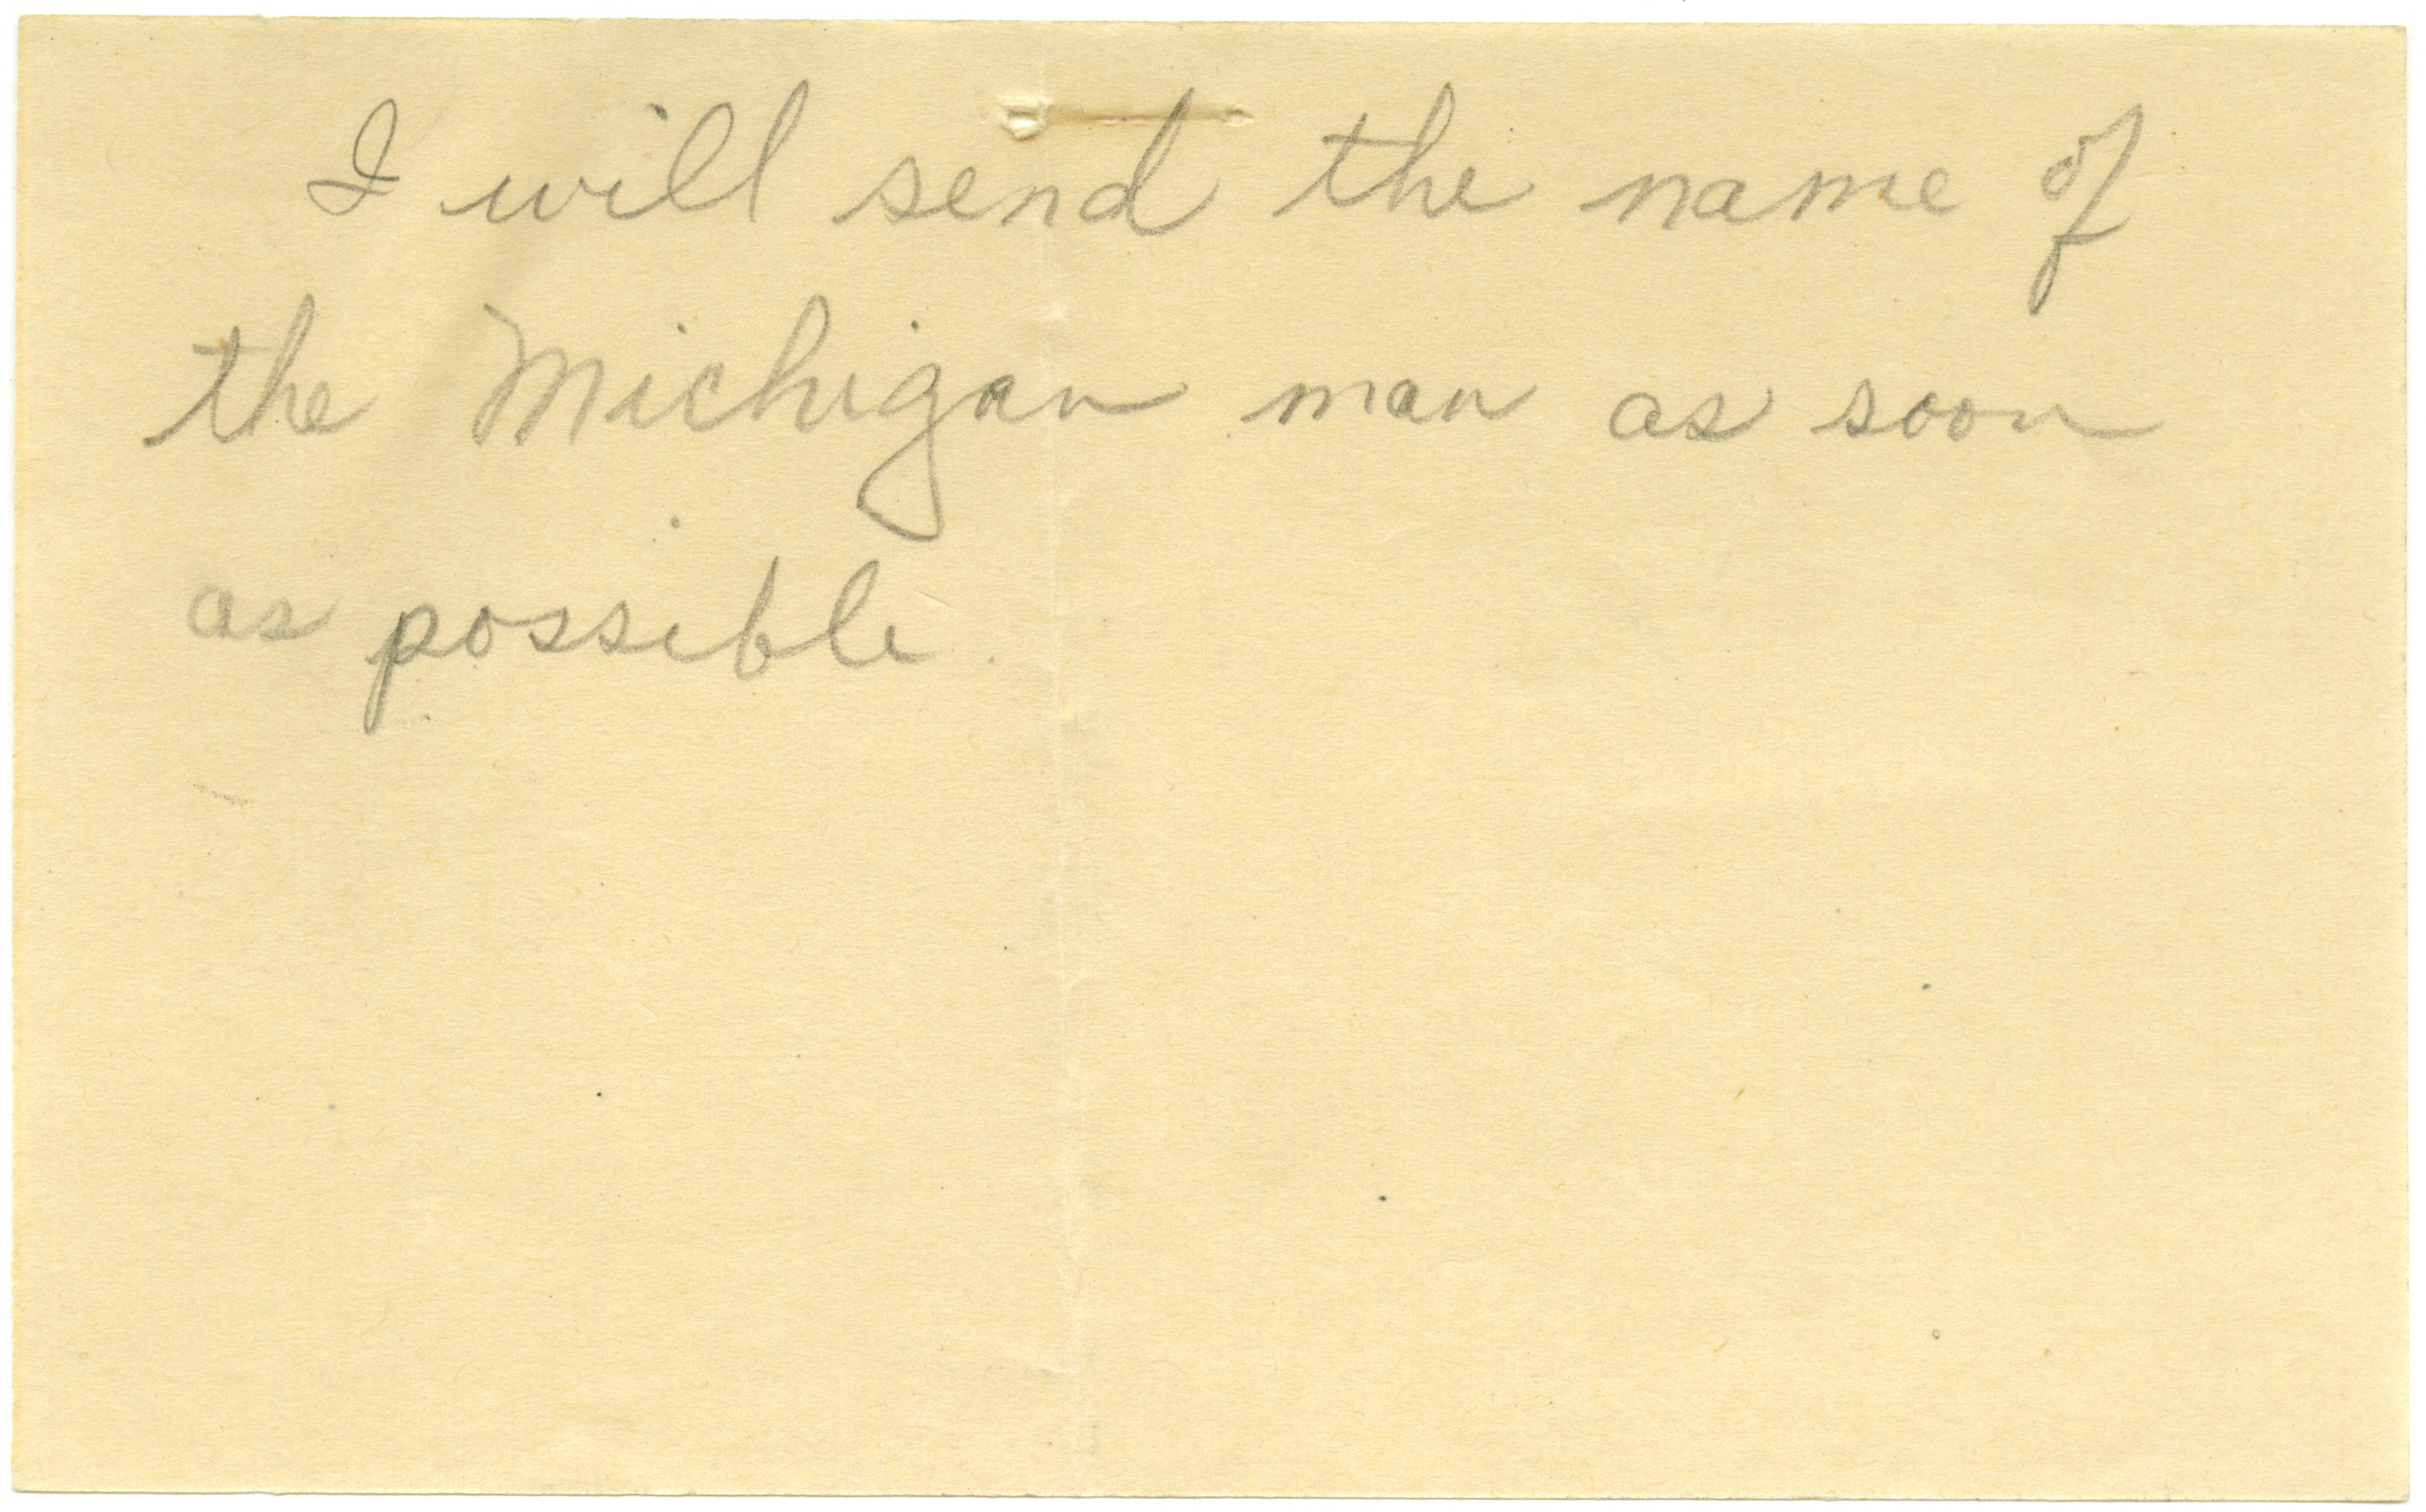 I will send the name of
the Michigan man as soon
as possible.